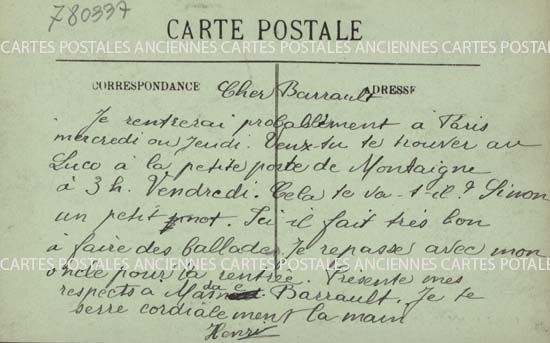 780337
CARTE POSTALE
CARTES POSTALES ANCIENNES CARTES POSTALES ANCIENNES CARTES POSTALES
CORRESPONDANCE
ADRESSE
Cher Barrault
Je rentrerai probablement à Paris
mercredi ou Jeudi. Veux-tu te trouver au
Luco à la petite porte de Montaigne
à 3 h. Vendredi. Cela te va-t-il? Sinon
un petit mot. Ici il fait très bon
à faire des ballades. Je repasse avec mon
oncle pour la rentrée. Présente mes
respects à Madame Barrault. Je te
serre cordialement la main
Henri